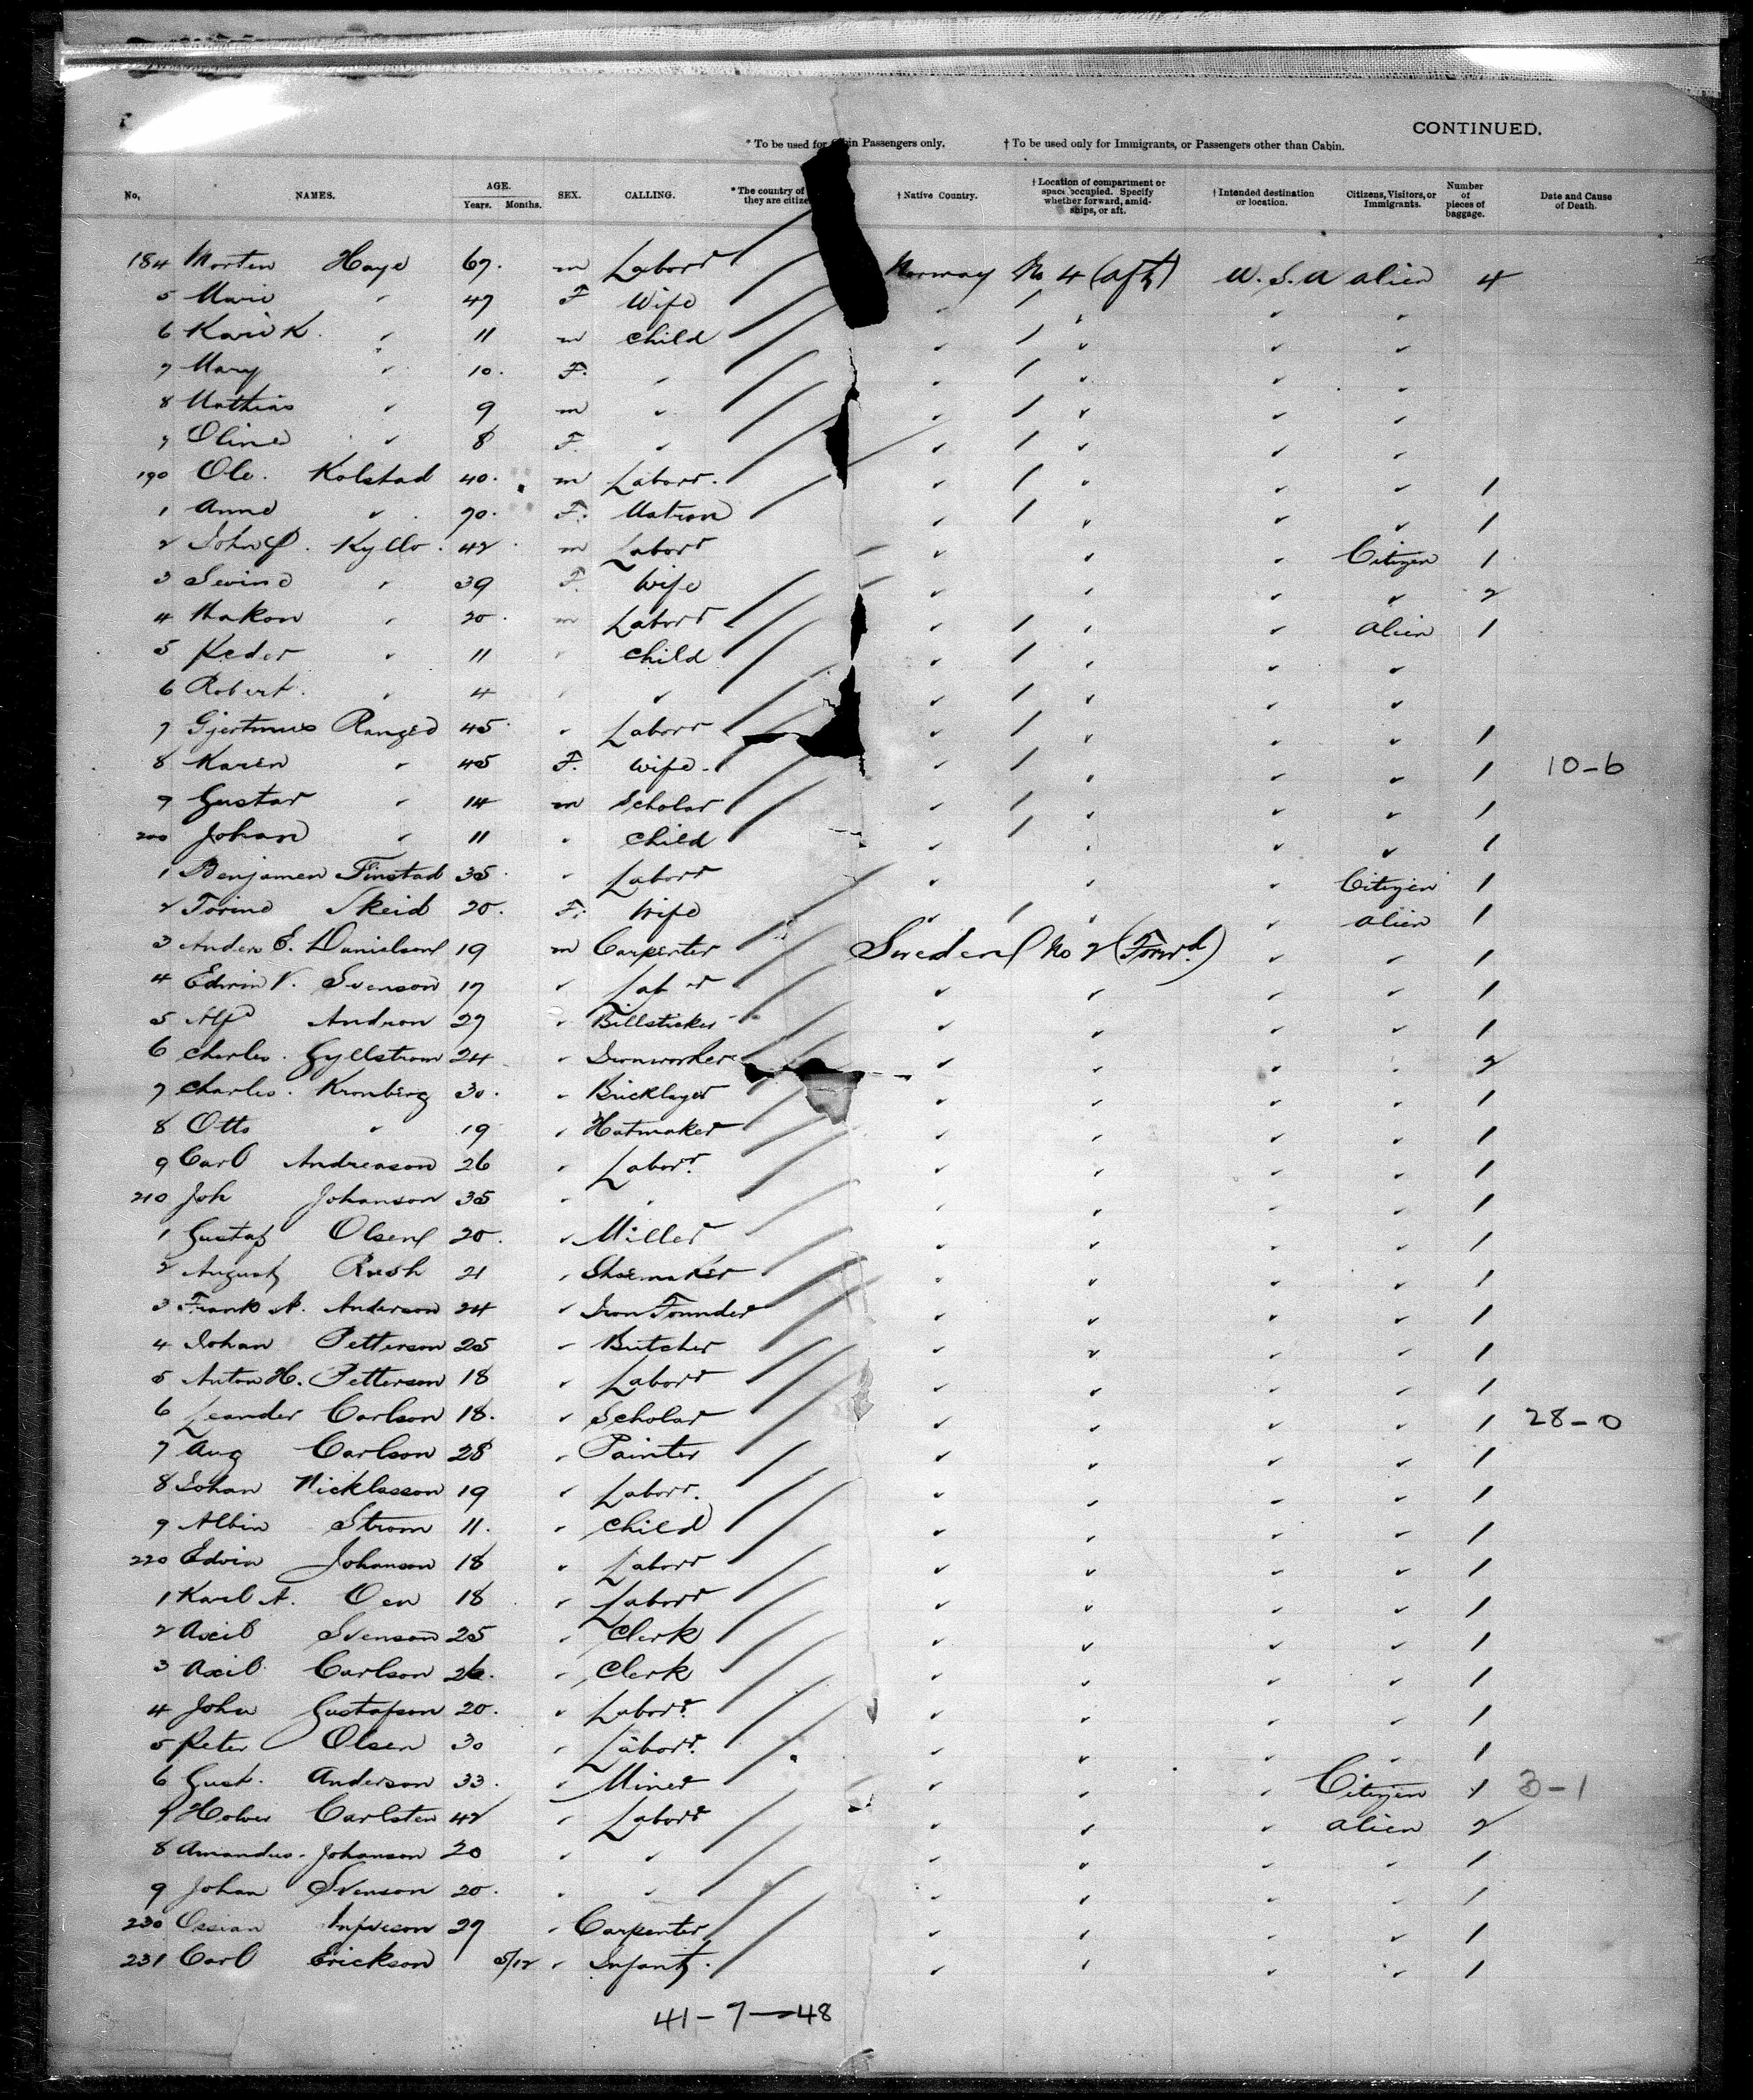 CONTINUED.
* To be used for Cabin Passengers only. † To be used only for Immigrants, or Passengers other than Cabin.
No. NAMES. AGE. Years. Months. SEX. CALLING. * The country of they are citize † Native Country. † Location of compartment or space occupied. Specify whether forward, amidships, or aft. † Intended destination or location. Citizens, Visitors, or Immigrants. Number of pieces of baggage. Date and Cause of Death.
184 Morten 67. m Labour Norway No 4 (aft) U.S.A alien 4
5 Marie " 47 F Wife " / " " "
6 " 11 m child " / " " "
7 Mary " 10. F. " " / " " "
8 Mathias " 9 m " " / " " "
9 " 8 F. " " / " " "
190 Ole. Kolstad 40. m Labour. " / " " " 1
1 Anne " 70. F. Matron " / " " " 1
2 John P. Kyllo. 42 m Labour " " " Citizen 1
3 " 39 F. Wife " " " " 2
4 Hakon " 20 m Labour " / " " alien 1
5 Peder " 11 " child " / " " "
6 Robert. " 4 " " " / " " "
7 45 " Labour " / " " " 1
8 Karen " 45 F. wife. " / " " " 1 10-6
9 Gustav " 14 m Scholar " / " " " 1
200 Johan " 11 " child " / " " " 1
1 Benjamen Finstad 35 " Labour " " " Citizen 1
2 Skeid 20. F. Wife " / " " alien 1
3 Anders E. Danielsen 19 m Carpenter Sweden No 2 (Forwd.) " " 1
4 Edwin V. Svenson 17 " Labr " " " " 1
5 Alfd 27 " Billsticker " " " " 1
6 Charles. Gyllstrom 24 " Ironworker " " " " 2
7 Charles. Kronberg 30. " Bricklayer " " " " 1
8 Otto " 19 " Hatmaker " " " " 1
9 Carl Andreason 26 " Labour. " " " " 1
210 Joh Johanson 35 " " " " " " 1
1 Gustaf Olsen 20. " Miller " " " " 1
2 August 21 " Shoemaker " " " " 1
3 Frank A. Anderson 24 " Iron Founder " " " " 1
4 Johan Petterson 25 " Butcher " " " " 1
5 Anton H. Petterson 18 " Labour " " " " 1
6 Leander Carlson 18. " Scholar " " " " 1 28-0
7 Aug Carlson 28 " Painter " " " " 1
8 Johan Nicklasson 19 " Labour. " " " " 1
9 Albin Strom 11. " child " " " " 1
220 Edvin Johanson 18 " Labour " " " " 1
1 Karl A. 18 " Labour " " " " 1
2 Axil Svenson 25 " Clerk " " " " 1
3 Axil Carlson 26. " Clerk " " " " 1
4 John Gustafson 20. " Labour. " " " " 1
5 Peter Olsen 30 " Labour. " " " " 1
6 Gust. Anderson 33. " Miner " " " Citizen 1 3-1
7 Carlsten 42 " Labour " " " alien 2
8 Amandus. Johanson 20 " " " " " " 1
9 Johan Svenson 20. " " " " " " 1
230 Ossian 27 " Carpenter " " " " 1
231 Carl Erickson 5/12 " Infant. " " " " 1
41-7-48